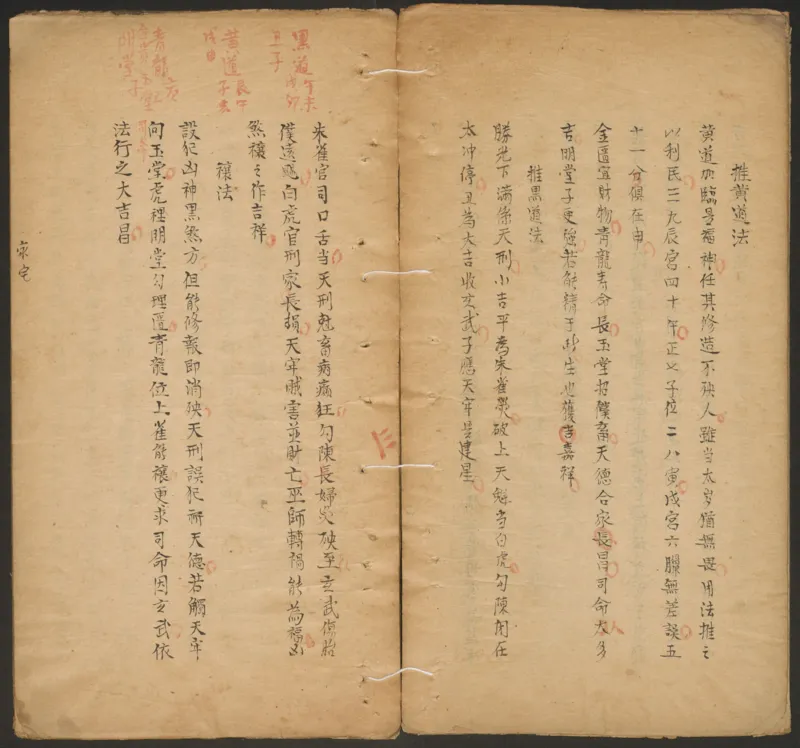 推黃道法
黃道加臨是福神任其修造不殃人雖当太岁猶無畏用法推之
以利民三九辰宮四十午正七子位二八寅戌宮六臘無差誤五
十一分俱在申
金匱宜財物青龍壽命長玉堂招僕畜天德合家長昌司命太多
吉明堂子更強若能精于此生也獲吉嘉祥
推黑道法
勝光下滿係天刑小吉平為朱雀畏破上天魁当白虎勾陳閉在
太冲停丑為大吉收玄武子應天牢是建星
朱雀宮司口舌当天刑尅畜病痛狂勾陳長婦災殃至玄武
僕遠颺白虎官刑家長損天牢賊害並財亡巫師轉禍能為福凶
煞禳之作吉祥
禳法
設犯凶神黑煞方但能修報即消殃天刑誤犯祈天德若觸天牢
向玉堂虎裡明堂勾理匱青龍位上雀能禳更求司命因玄武依
法行之大吉昌
黑道午未
丑子
黃道辰午
戌申子
青龍
明堂子
家宅